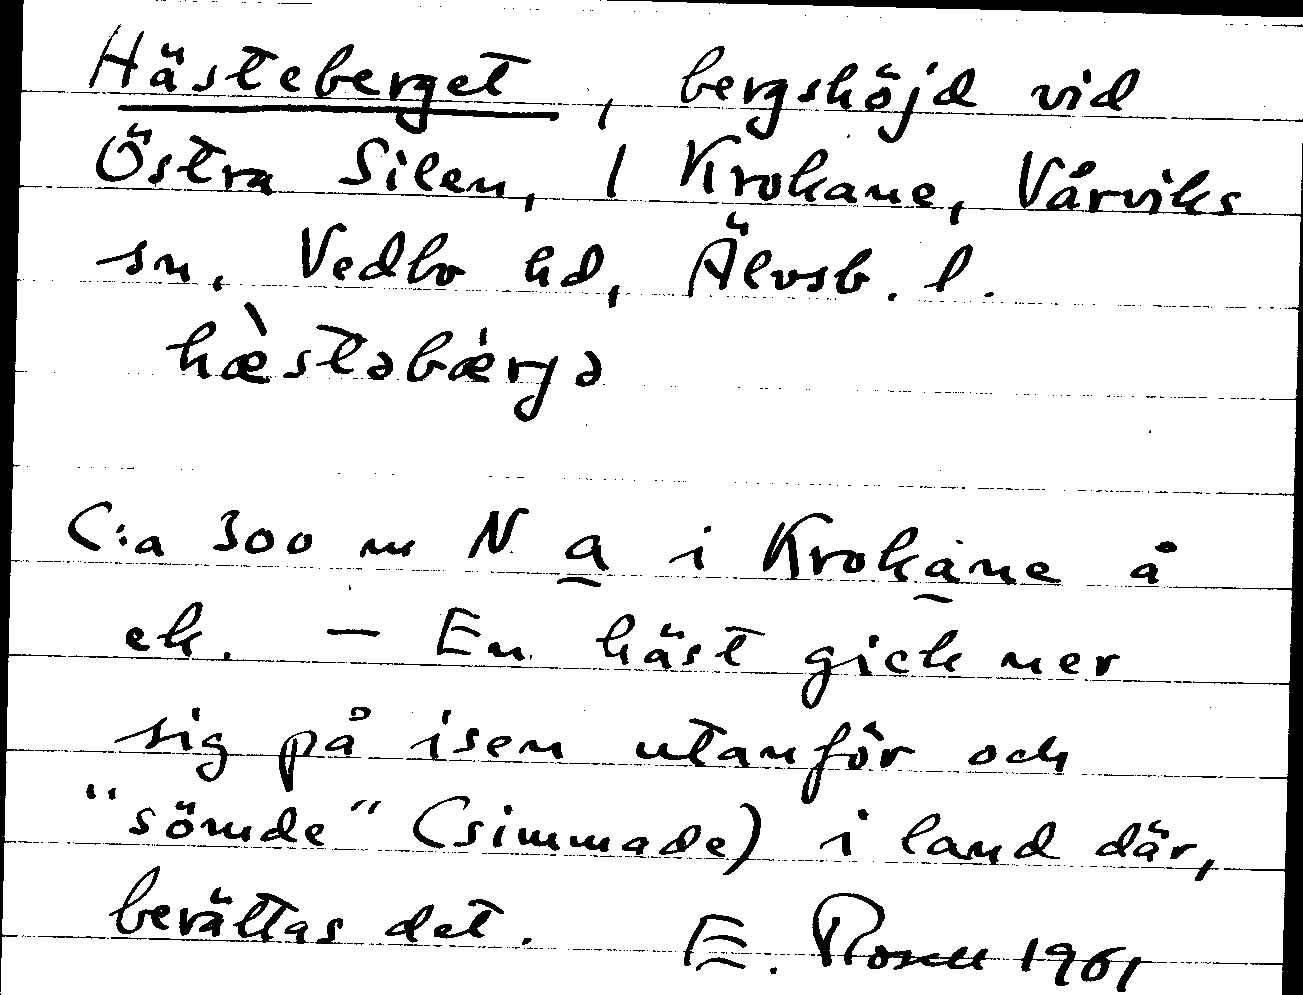 Hästeberget, bergshöjd vid
Östra Silen, 1 Krokane, Vårviks
sn, Vedbo hd, Älvsb. l.
hæ̀stəbǽrjə
C:a 300 m N a i Krokane å
ek. — En häst gick ner
sig på isen utanför och
"sömde" (simmade) i land där,
berättas det. E. Rosell 1961